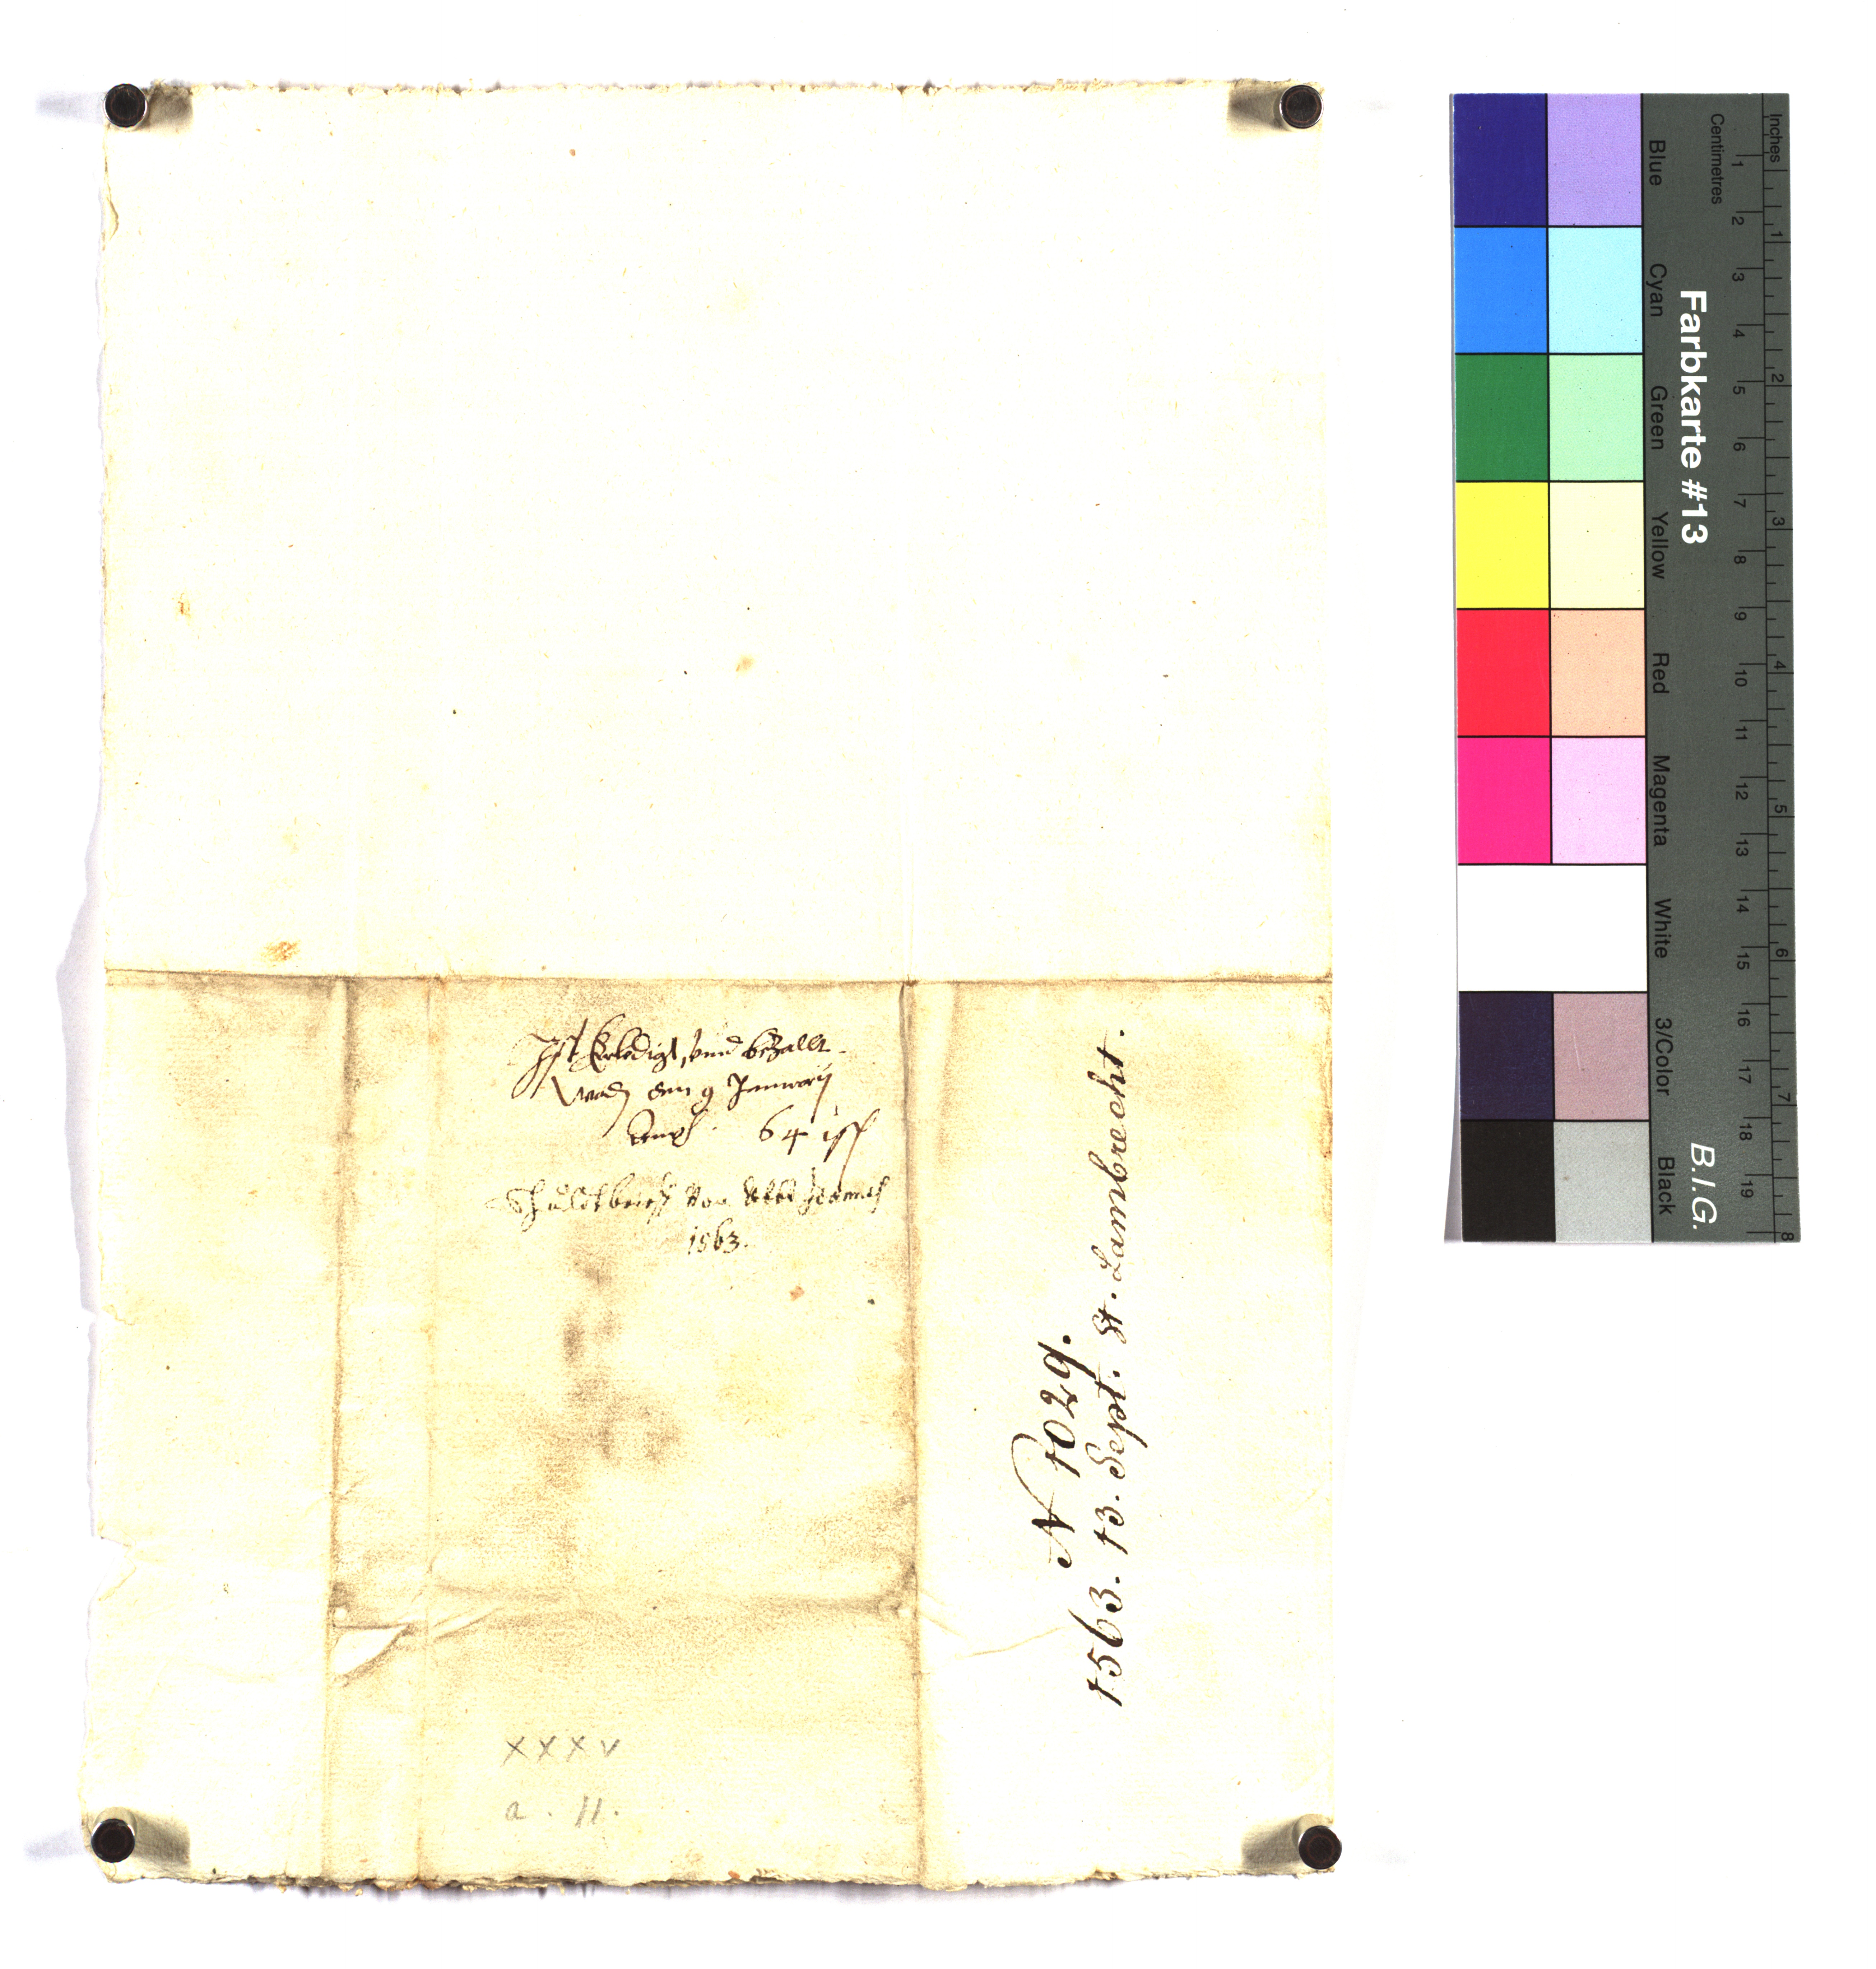 Ist Erledigt, vnnd bezallt
worden den 9 January
64 isst
Schuldtbrieff von Abbt
1563.
N 1029.
1563. 13. Sept. St. Lambrecht.
XXXV
a . 11.
Inches
Centimetres
Farbkarte #13
B.I.G.
Blue
Cyan
Green
Yellow
Red
Magenta
White
3/Color
Black
1 2 3 4 5 6 7 8 9 10 11 12 13 14 15 16 17 18 19
1 2 3 4 5 6 7 8